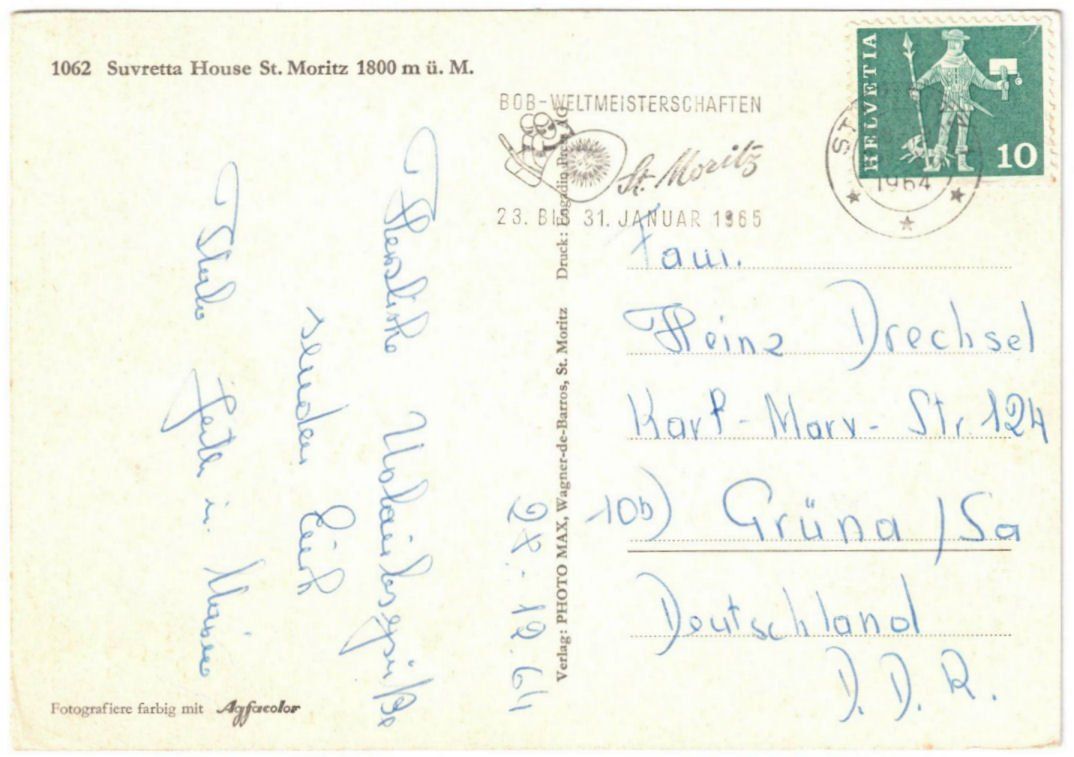 1062 Suvretta House St. Moritz 1800 m ü. M.
BOB-WELTMEISTERSCHAFTEN
St. Moritz
23. BIS 31. JANUAR 1965
HELVETIA
10
ST
1964
28.12.64
Herzliche Urlaubsgrüße
senden Euch
Fam.
Heinz Drechsel
Karl-Marx-Str. 124
10b) Grüna /Sa
Deutschland
D.D.R.
Verlag: PHOTO MAX, Wagner-de-Barros, St. Moritz Druck: Engadin Press AG
Fotografiere farbig mit Agfacolor